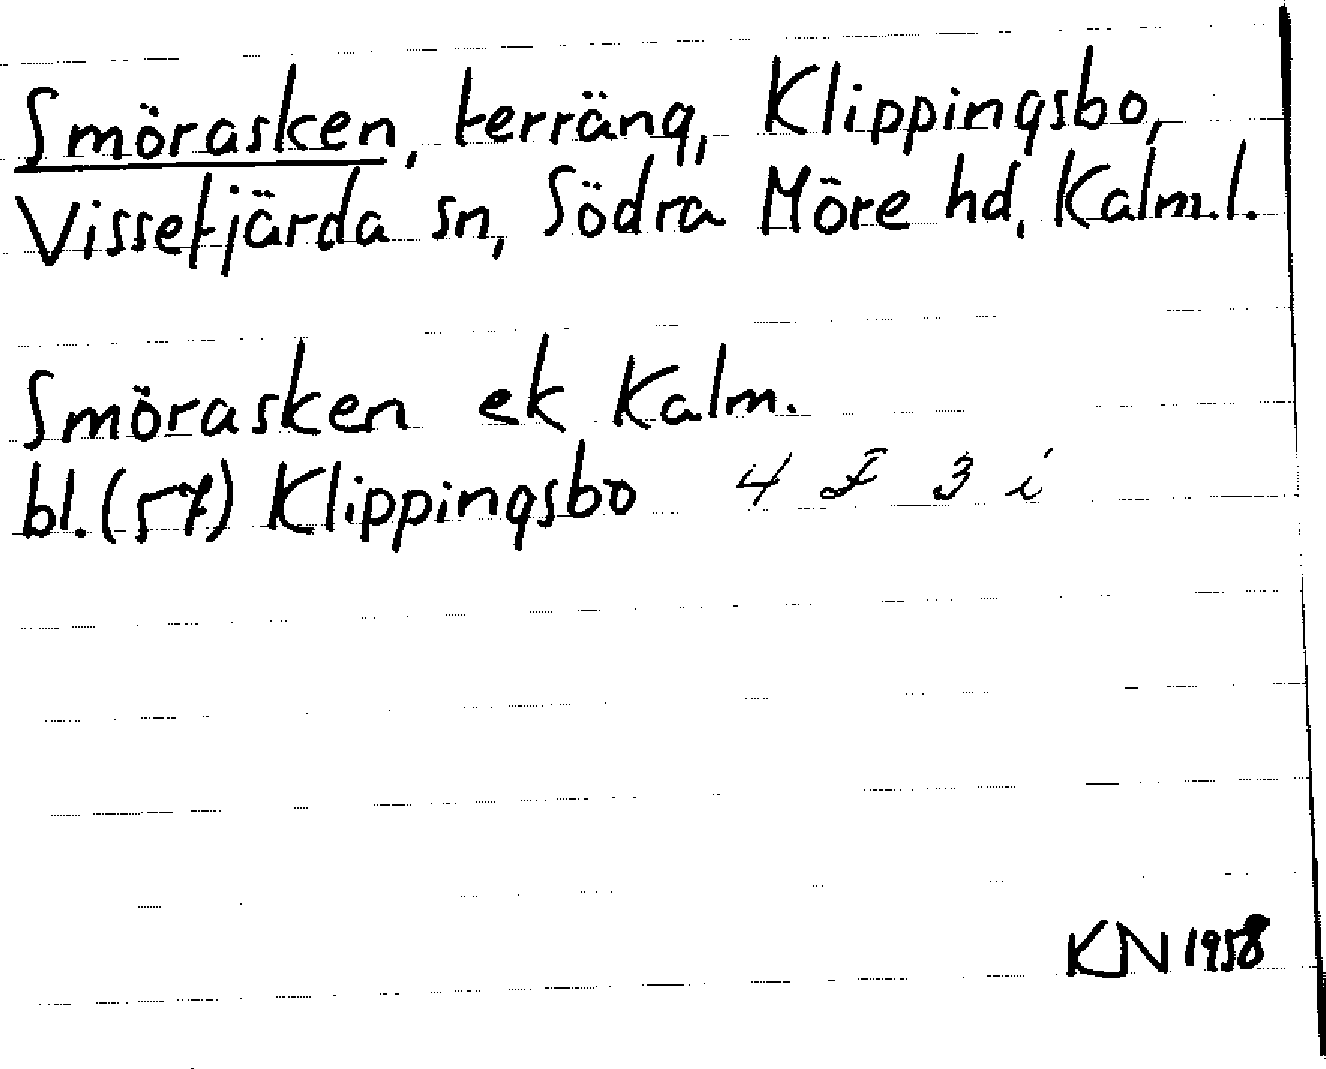 Smörasken, terräng, Klippingsbo,
Vissefjärda sn, Södra Möre hd, Kalm.l.
Smörasken ek Kalm.
bl. (57) Klippingsbo 4 F 3 i
KN 1958